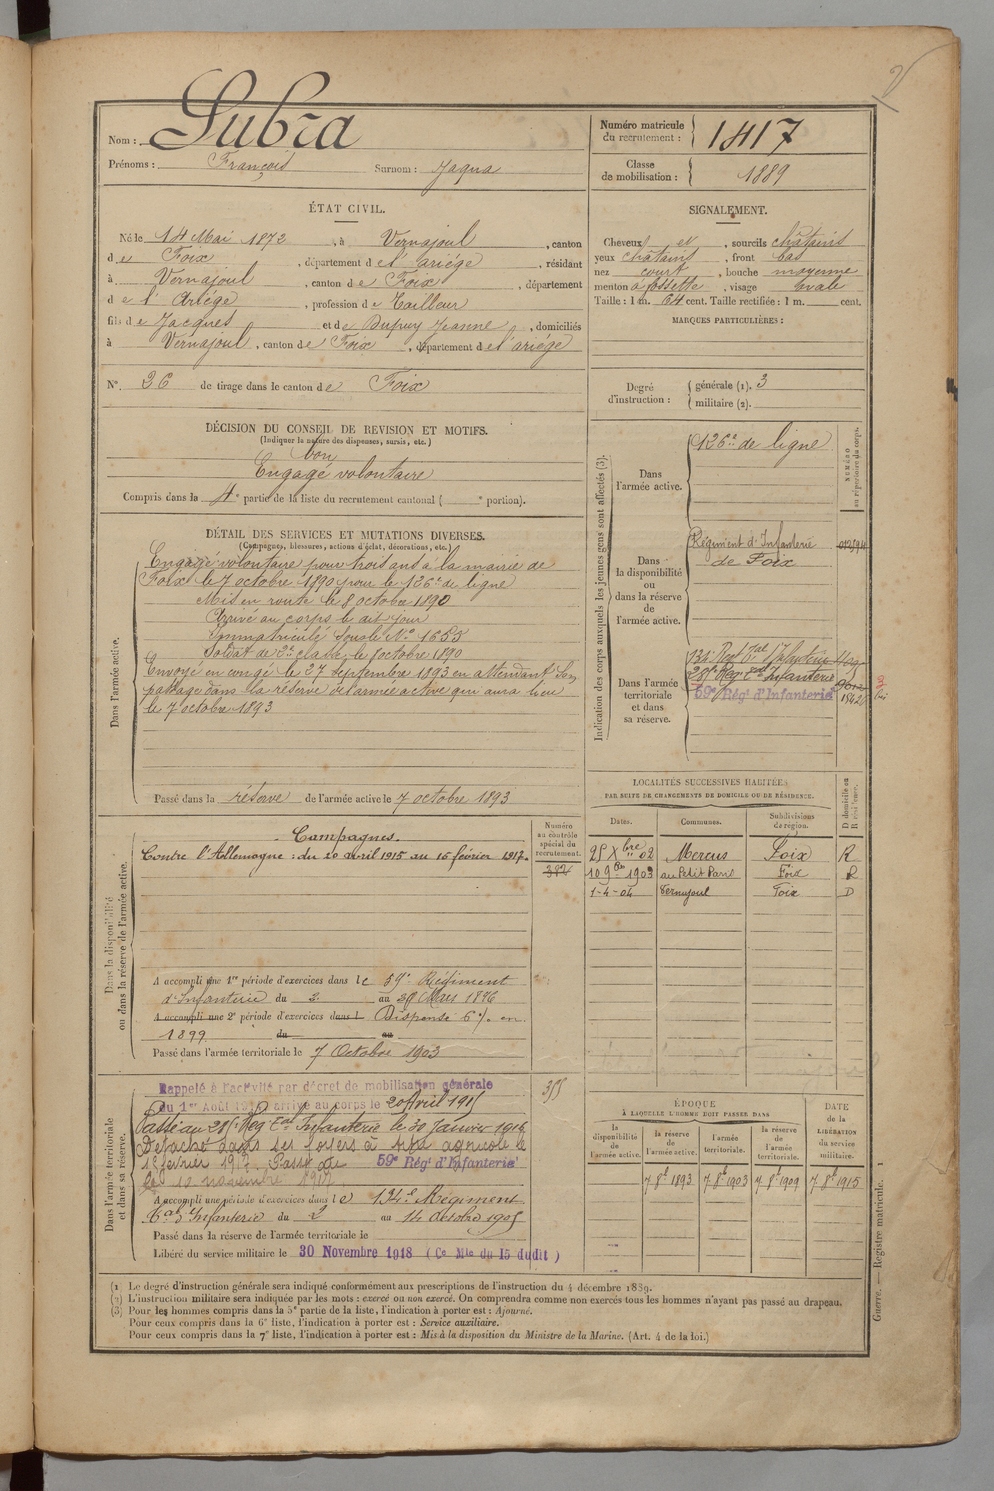 Nom : Subra
Prénoms : François Surnom : Jaqua
Numéro matricule du recrutement : 1417
Classe de mobilisation : 1889
ÉTAT CIVIL.
Né le 14 Mai 1872, à Vernajoul, canton
de Foix, département de l'ariége, résidant
à Vernajoul, canton de Foix, département
de l'Ariége, profession de Tailleur
fils de Jacques et de Dupuy Jeanne, domiciliés
à Vernajoul, canton de Foix, département de l'ariége
N° 26 de tirage dans le canton de Foix
SIGNALEMENT.
Cheveux et, sourcils châtains
yeux châtains, front bas
nez court, bouche moyenne
menton à fossette, visage ovale
Taille : 1 m. 64 cent. Taille rectifiée : 1 m. cent.
MARQUES PARTICULIÈRES :
Degré d'instruction : générale (1). 3
militaire (2).
DÉCISION DU CONSEIL DE REVISION ET MOTIFS.
(Indiquer la nature des dispenses, sursis, etc.)
bon
Engagé volontaire
Compris dans la 4e partie de la liste du recrutement cantonal ( e portion).
DÉTAIL DES SERVICES ET MUTATIONS DIVERSES.
(Campagnes, blessures, actions d'éclat, décorations, etc.)
Dans l'armée active.
Engagé volontaire pour trois ans à la mairie de
Foix le 7 octobre 1890 pour le 126e de ligne
Mis en route le 8 octobre 1890
Arrivé au corps le dit jour
Immatriculé sous le N° 1655
Soldat de 2e classe le octobre 1890
Envoyé en congé le 27 septembre 1893 en attendant son
passage dans la réserve de l'armée active qui aura lieu
le 7 octobre 1893
Passé dans la réserve de l'armée active le 7 octobre 1893
Indication des corps auxquels les jeunes gens sont affectés (3).
NUMÉRO au répertoire du corps.
Dans l'armée active.
126e de ligne
Dans la disponibilité ou dans la réserve de l'armée active.
Régiment d'Infanterie
de Foix
Dans l'armée territoriale et dans sa réserve.
134e Reg t tal d'Infanterie
59e Régt d'Infanterie
LOCALITÉS SUCCESSIVES HABITÉES
PAR SUITE DE CHANGEMENTS DE DOMICILE OU DE RÉSIDENCE.
Dates. Communes. Subdivisions de région. D domicile ou R résidence.
25 Xbre 02 Mercus Foix R
10 9bre 1903 au Petit Paris Foix R
1-4-04 Vernajoul Foix D
Dans la disponibilité ou dans la réserve de l'armée active.
Numéro au contrôle spécial du recrutement.
382
Campagnes.
Contre l'Allemagne : du 20 avril 1915 au 16 février 1917.
A accompli une 1re période d'exercices dans le 59e Régiment
d'Infanterie du 2 au 29 Mars 1896
A accompli une 2e période d'exercices dans l Dispense 6% en
1899 du au
Passé dans l'armée territoriale le 7 Octobre 1903
Dans l'armée territoriale et dans sa réserve.
355
Rappelé à l'activité par décret de mobilisation générale
du 1er Août 1914 arrivé au corps le 20 Avril 1915
Passé au Reg tal Infanterie le 30 Janvier
Détaché dans ses foyers à agricole le
16 février 1917. Passé au 59e Régt d'Infanterie
le 10 novembre 1917
A accompli une période d'exercices dans le 134e Régiment
tal d'Infanterie du 2 au 14 Octobre 1905
Passé dans la réserve de l'armée territoriale le
Libéré du service militaire le 30 Novembre 1918 (Ce Mle du 15 dudit)
ÉPOQUE
À LAQUELLE L'HOMME DOIT PASSER DANS
la disponibilité de l'armée active. la réserve de l'armée active. l'armée territoriale. la réserve de l'armée territoriale.
DATE de la LIBÉRATION du service militaire.
7 8bre 1893 7 8bre 1903 7 8bre 1909 7 8bre 1915
(1) Le degré d'instruction générale sera indiqué conformément aux prescriptions de l'instruction du 4 décembre 1889.
(2) L'instruction militaire sera indiquée par les mots : exercé ou non exercé. On comprendra comme non exercés tous les hommes n'ayant pas passé au drapeau.
(3) Pour les hommes compris dans la 5e partie de la liste, l'indication à porter est : Ajourné.
Pour ceux compris dans la 6e liste, l'indication à porter est : Service auxiliaire.
Pour ceux compris dans la 7e liste, l'indication à porter est : Mis à la disposition du Ministre de la Marine. (Art. 4 de la loi.)
Guerre. — Registre matricule. 1